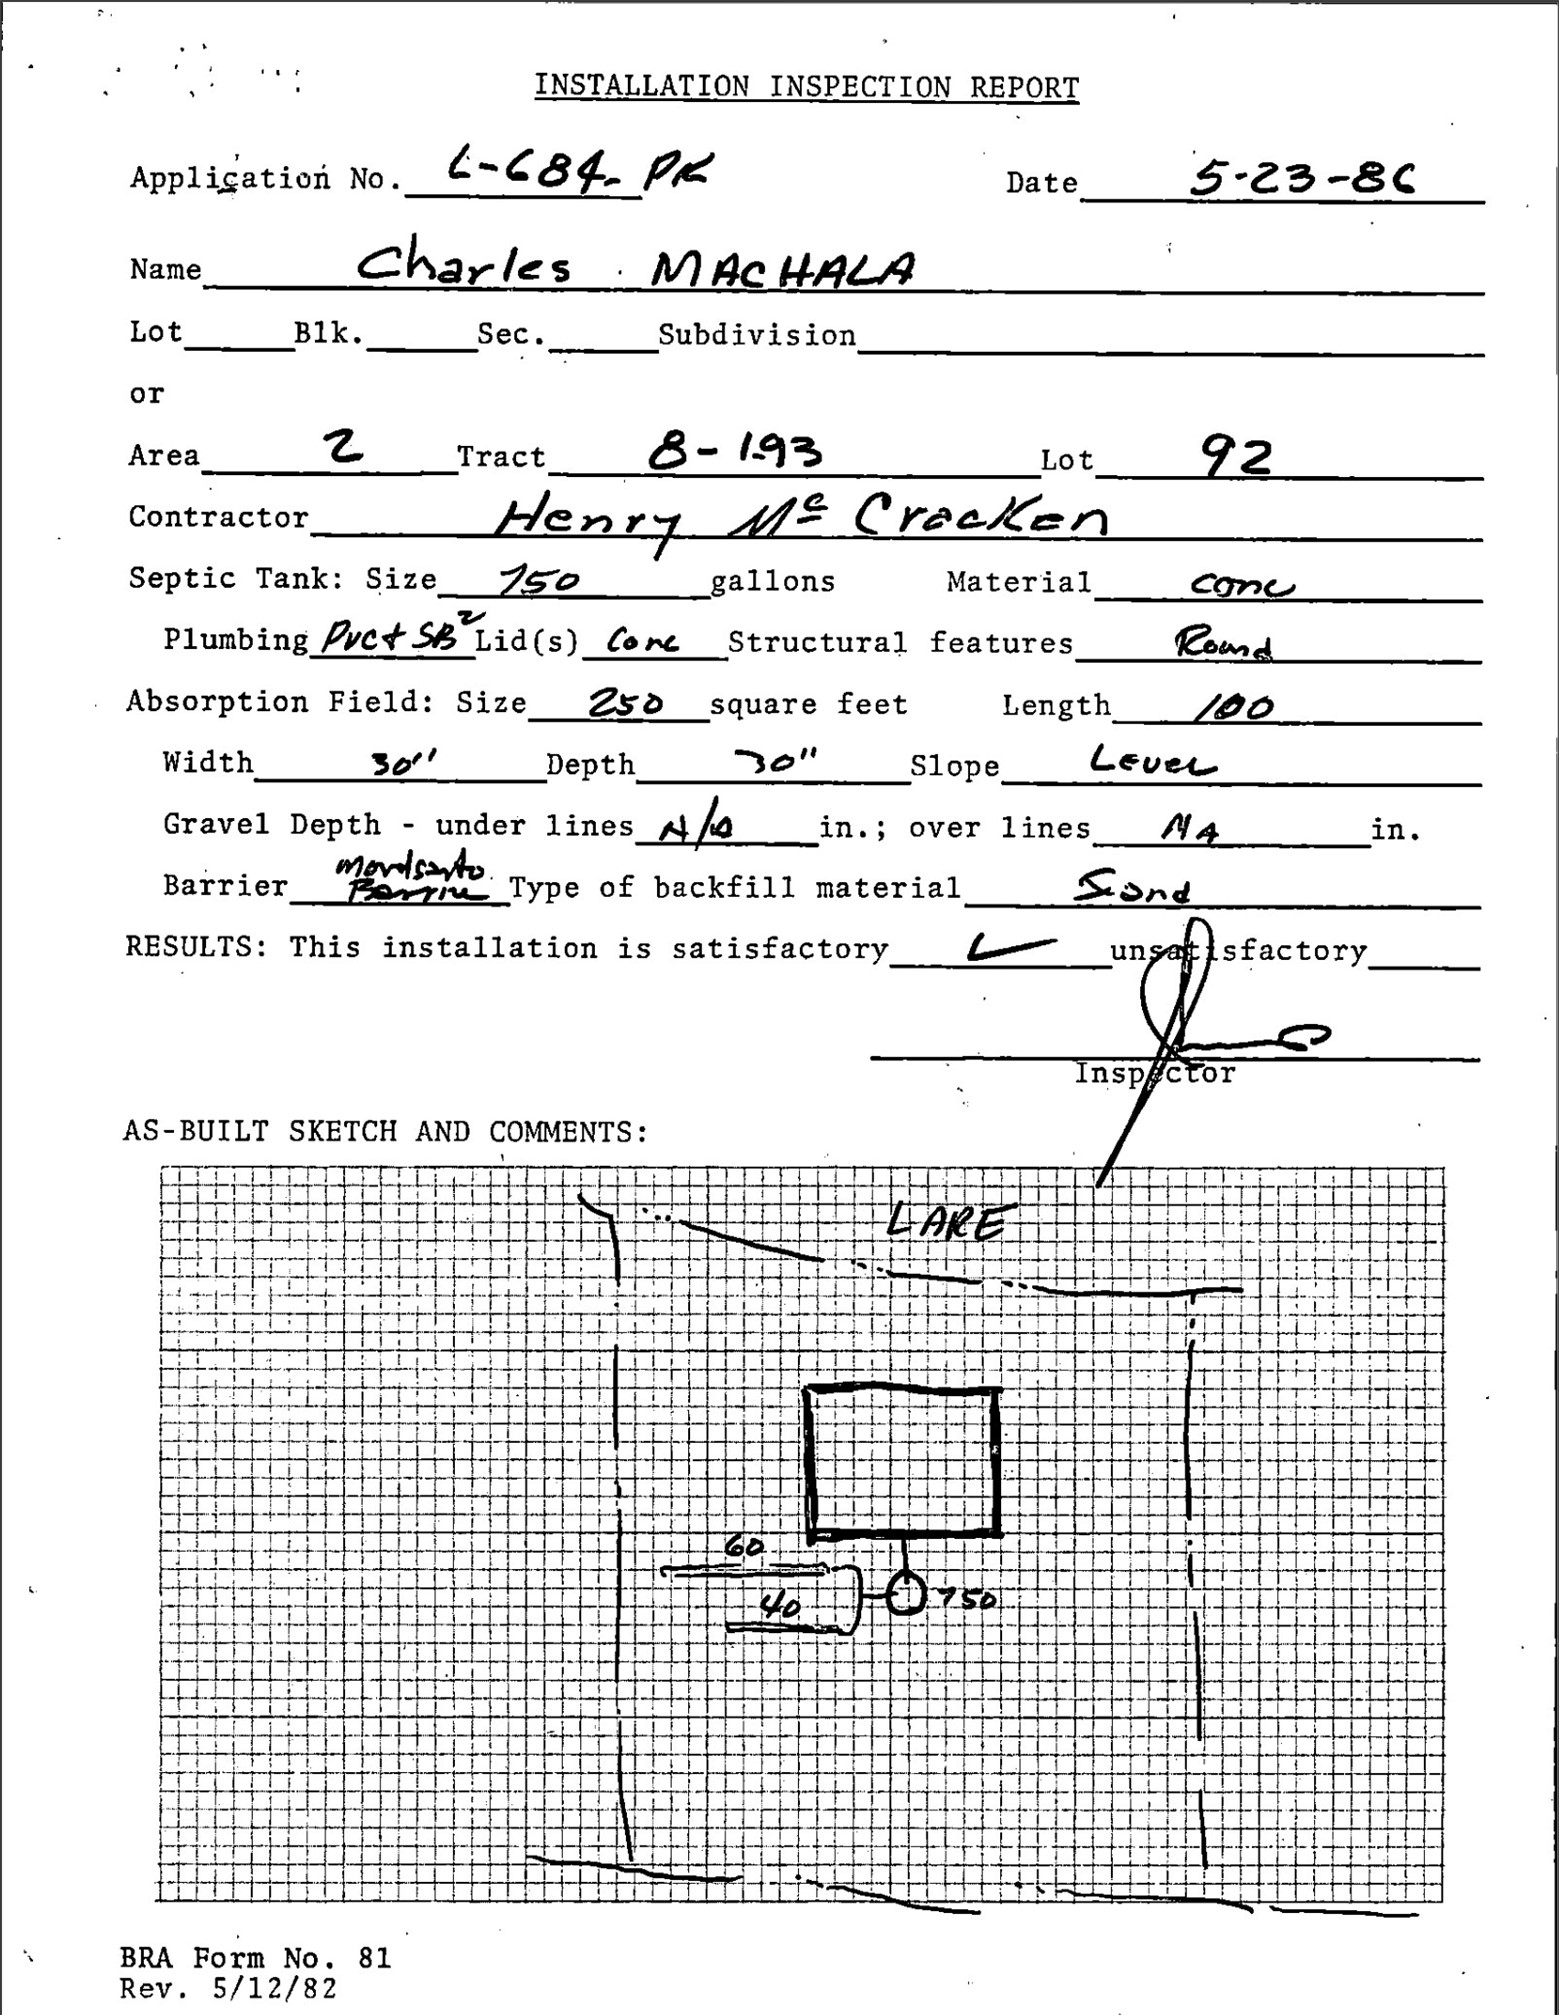 INSTALLATION INSPECTION REPORT
Application No. L-684-PK Date 5-23-86
Name Charles MACHALA
Lot Blk. Sec. Subdivision
or
Area 2 Tract 8-193 Lot 92
Contractor Henry Mc Cracken
Septic Tank: Size 750 gallons Material conc
Plumbing PVC+SB2 Lid(s) Conc Structural features Round
Absorption Field: Size 250 square feet Length 100
Width 30" Depth 30" Slope LEVEL
Gravel Depth - under lines N/A in.; over lines NA in.
Barrier Type of backfill material Sand
RESULTS: This installation is satisfactory ✓ unsatisfactory
Inspector
AS-BUILT SKETCH AND COMMENTS:
LAKE
60
40 750
BRA Form No. 81
Rev. 5/12/82